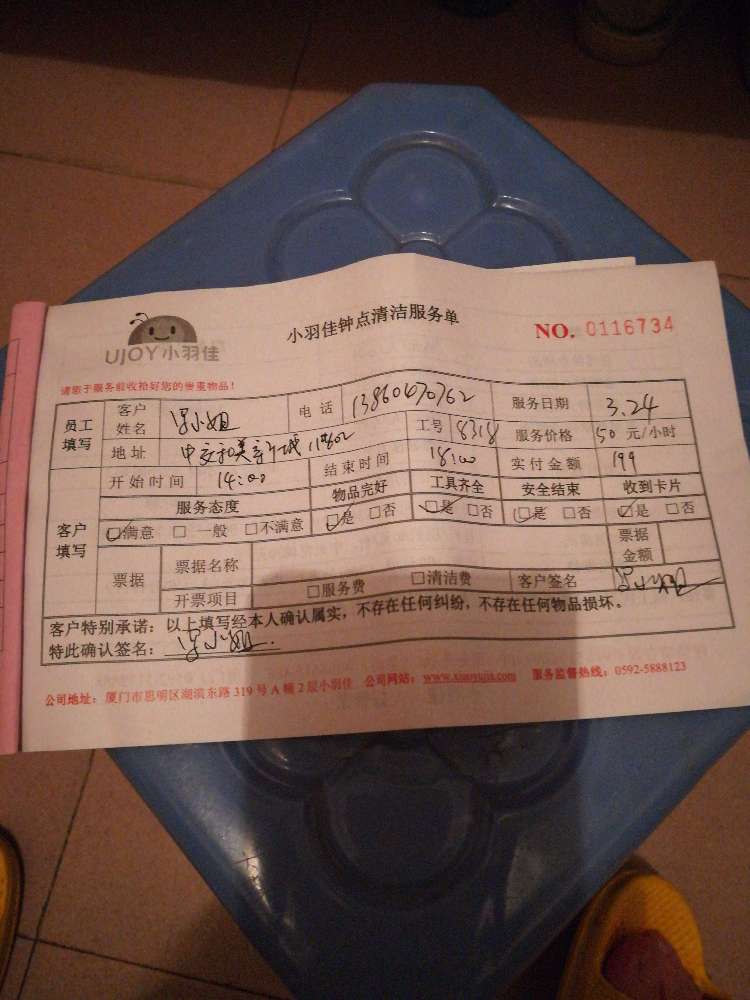 UJOY小羽佳
小羽佳钟点清洁服务单
NO. 0116734
请您于服务前收拾好您的贵重物品！
员工填写 客户姓名 小姐 电话 13860670762 服务日期 3.24
地址 中交和美新城 工号 8318 服务价格 50 元/小时
开始时间 14:00 结束时间 18:00 实付金额 199
客户填写 服务态度 物品完好 工具齐全 安全结束 收到卡片
☑满意 □一般 □不满意 ☑是 □否 ☑是 □否 ☑是 □否 ☑是 □否
票据 票据名称 票据金额
开票项目 □服务费 □清洁费 客户签名 小姐
客户特别承诺：以上填写经本人确认属实，不存在任何纠纷，不存在任何物品损坏。
特此确认签名： 小姐.
公司地址：厦门市思明区湖滨东路 319 号 A 幢 2 层小羽佳 公司网站：www.xiaoyujia.com 服务监督热线：0592-5888123